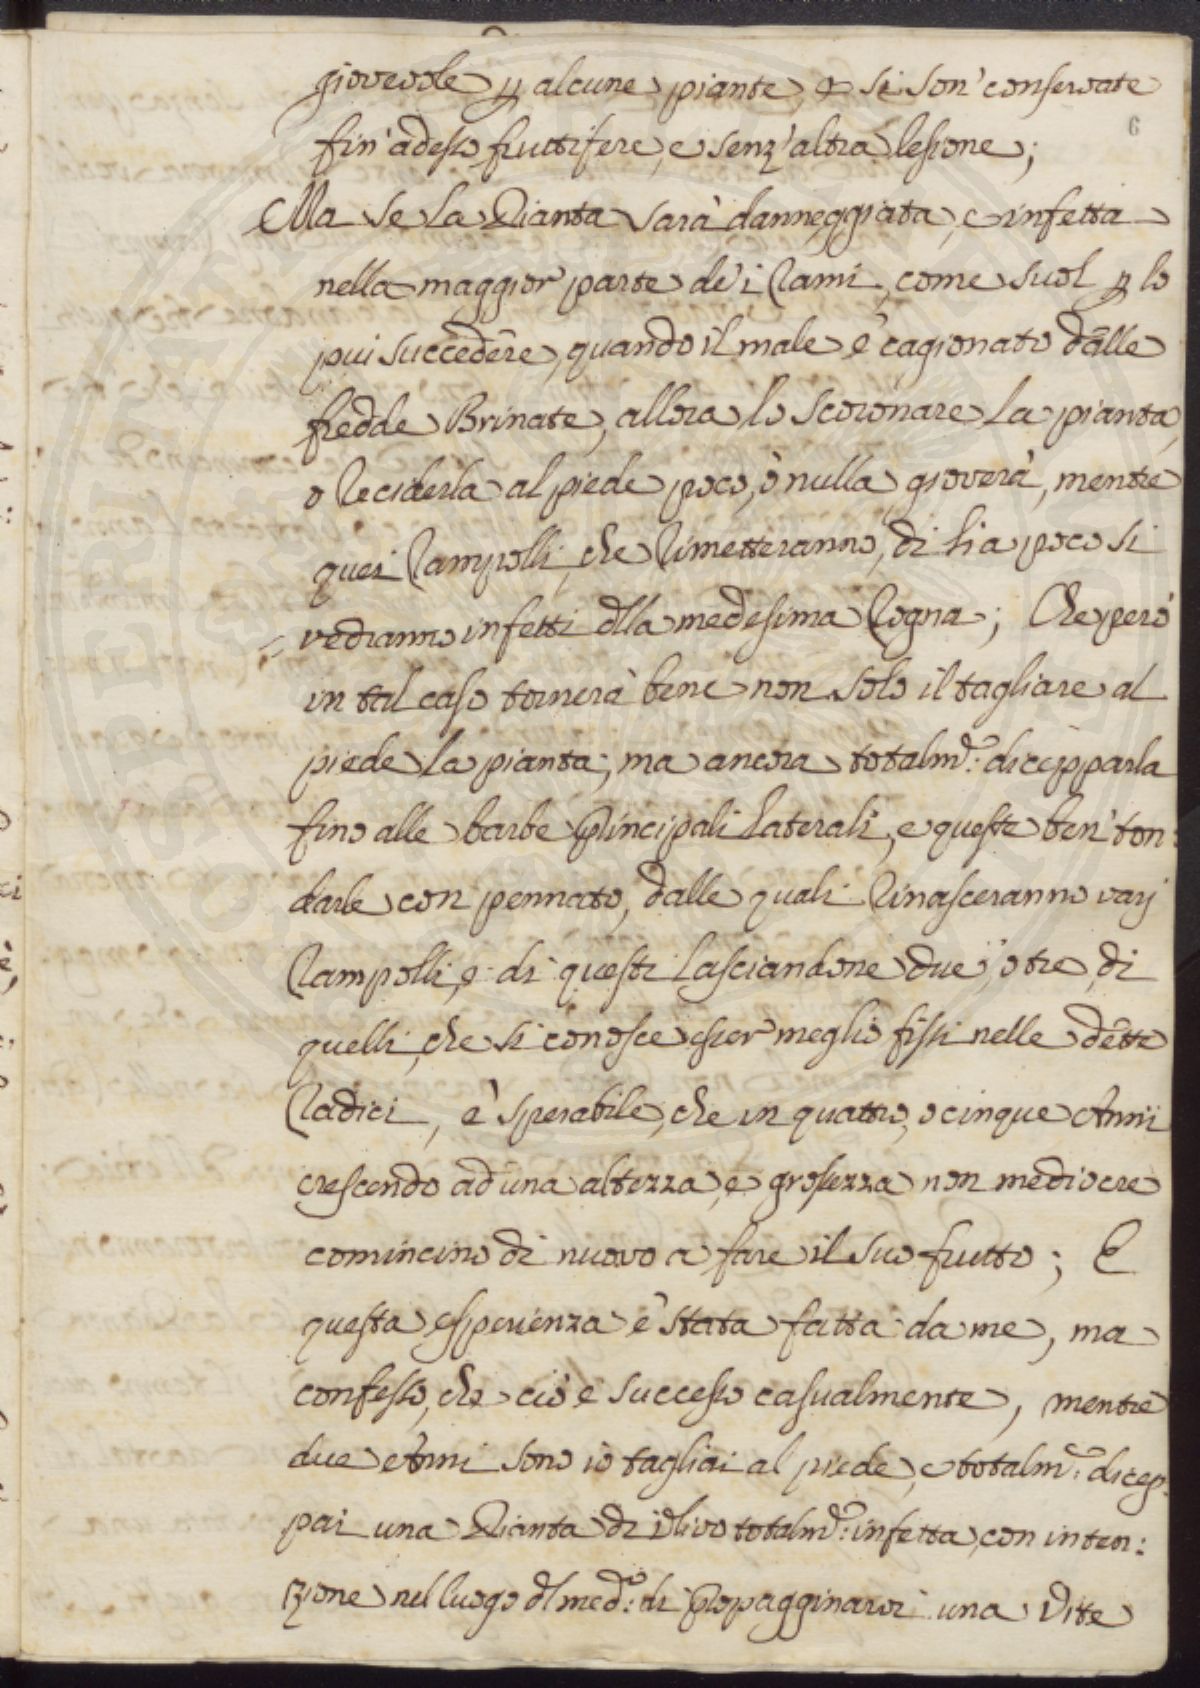 giovevole p alcune piante, e si son' conservate
6
fin' adesso fruttifere, e senz' altra lesione;
Ma se la Pianta sarà danneggiata, e infetta
nella maggior parte de i Rami, come suol p lo
piu succedere, quando il male è cagionato dalle
fredde Brinate, allora lo scoronare la pianta,
o reciderla al piede poco, ò nulla gioverà, mentre
quei Rampolli, che rimetteranno, di lì a poco si
vedranno infetti dlla medesima Rogna; Che però
in tal caso tornerà bene non solo il tagliare al
piede la pianta; ma ancora totalm.e diceipparla
fino alle barbe principali laterali, e queste ben' ton:
darle con pennato, dalle quali rinasceranno varj
Rampolli, e di questi lasciandone due, ò tre, di
quelli, che si conosce esser meglio fissi nelle dette
Radici, è sperabile, che in quattro, o cinque Anni
crescendo ad una altezza, e grossezza non mediocre
comincino di nuovo a fare il suo frutto; E
questa esperienza è stata fatta da me, ma
confesso, che ciò è successo casualmente, mentre
due Anni sono io tagliai al piede, e totalm.e dicep:
pai una Pianta di Ulivo totalm.e infetta, con inten:
zione nel luogo dl med.o di propagginarvi una Vite